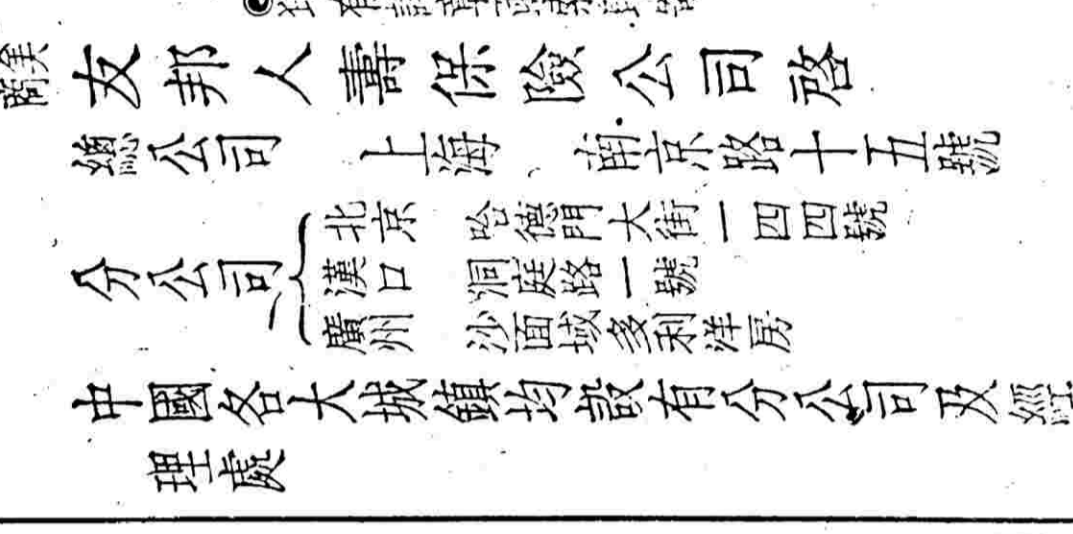 美商友邦人壽保險公司啓
總公司 上海 南京路十五號
分公司
北京 哈德門大街一四四號
漢口 洞庭路一號
廣州 沙面域多利洋房
中國各大城鎮均設有分公司及經
理處